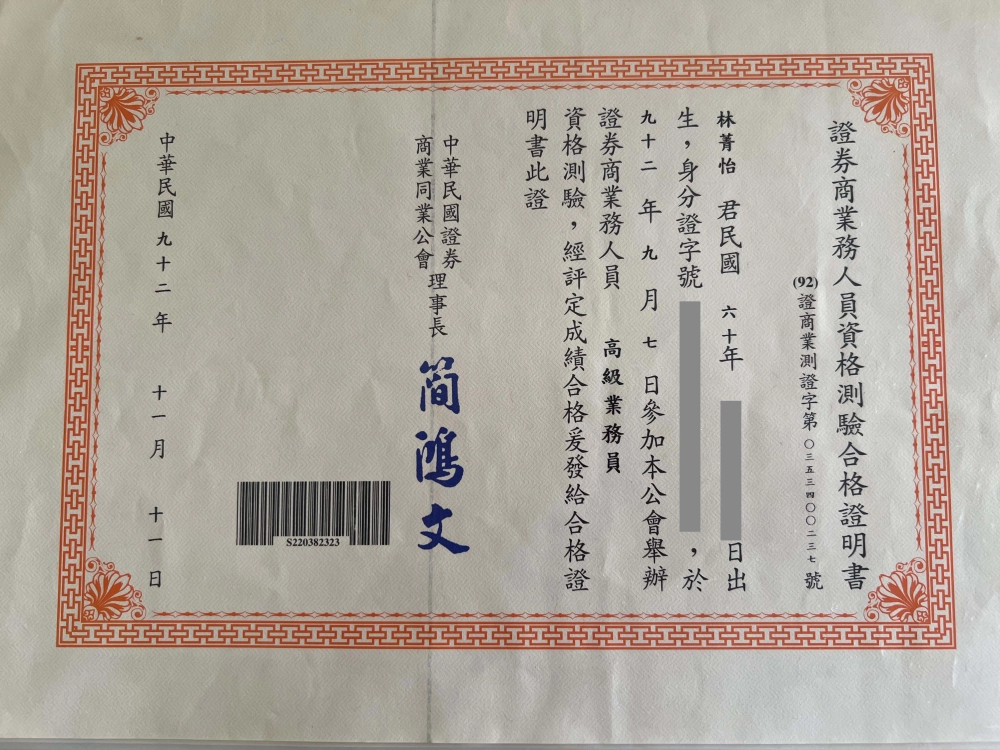 證券商業務人員資格測驗合格證明書
(92)證商業測證字第○三五三四○○二三七號
林菁怡 君民國 六十年 日出
生，身分證字號 ，於
九十二 年 九 月 七 日參加本公會舉辦
證券商業務人員 高級業務員
資格測驗，經評定成績合格爰發給合格證
明書此證
中華民國證券
商業同業公會
理事長
簡鴻文
S220382323
中華民國 九十二 年 十一月 十一日